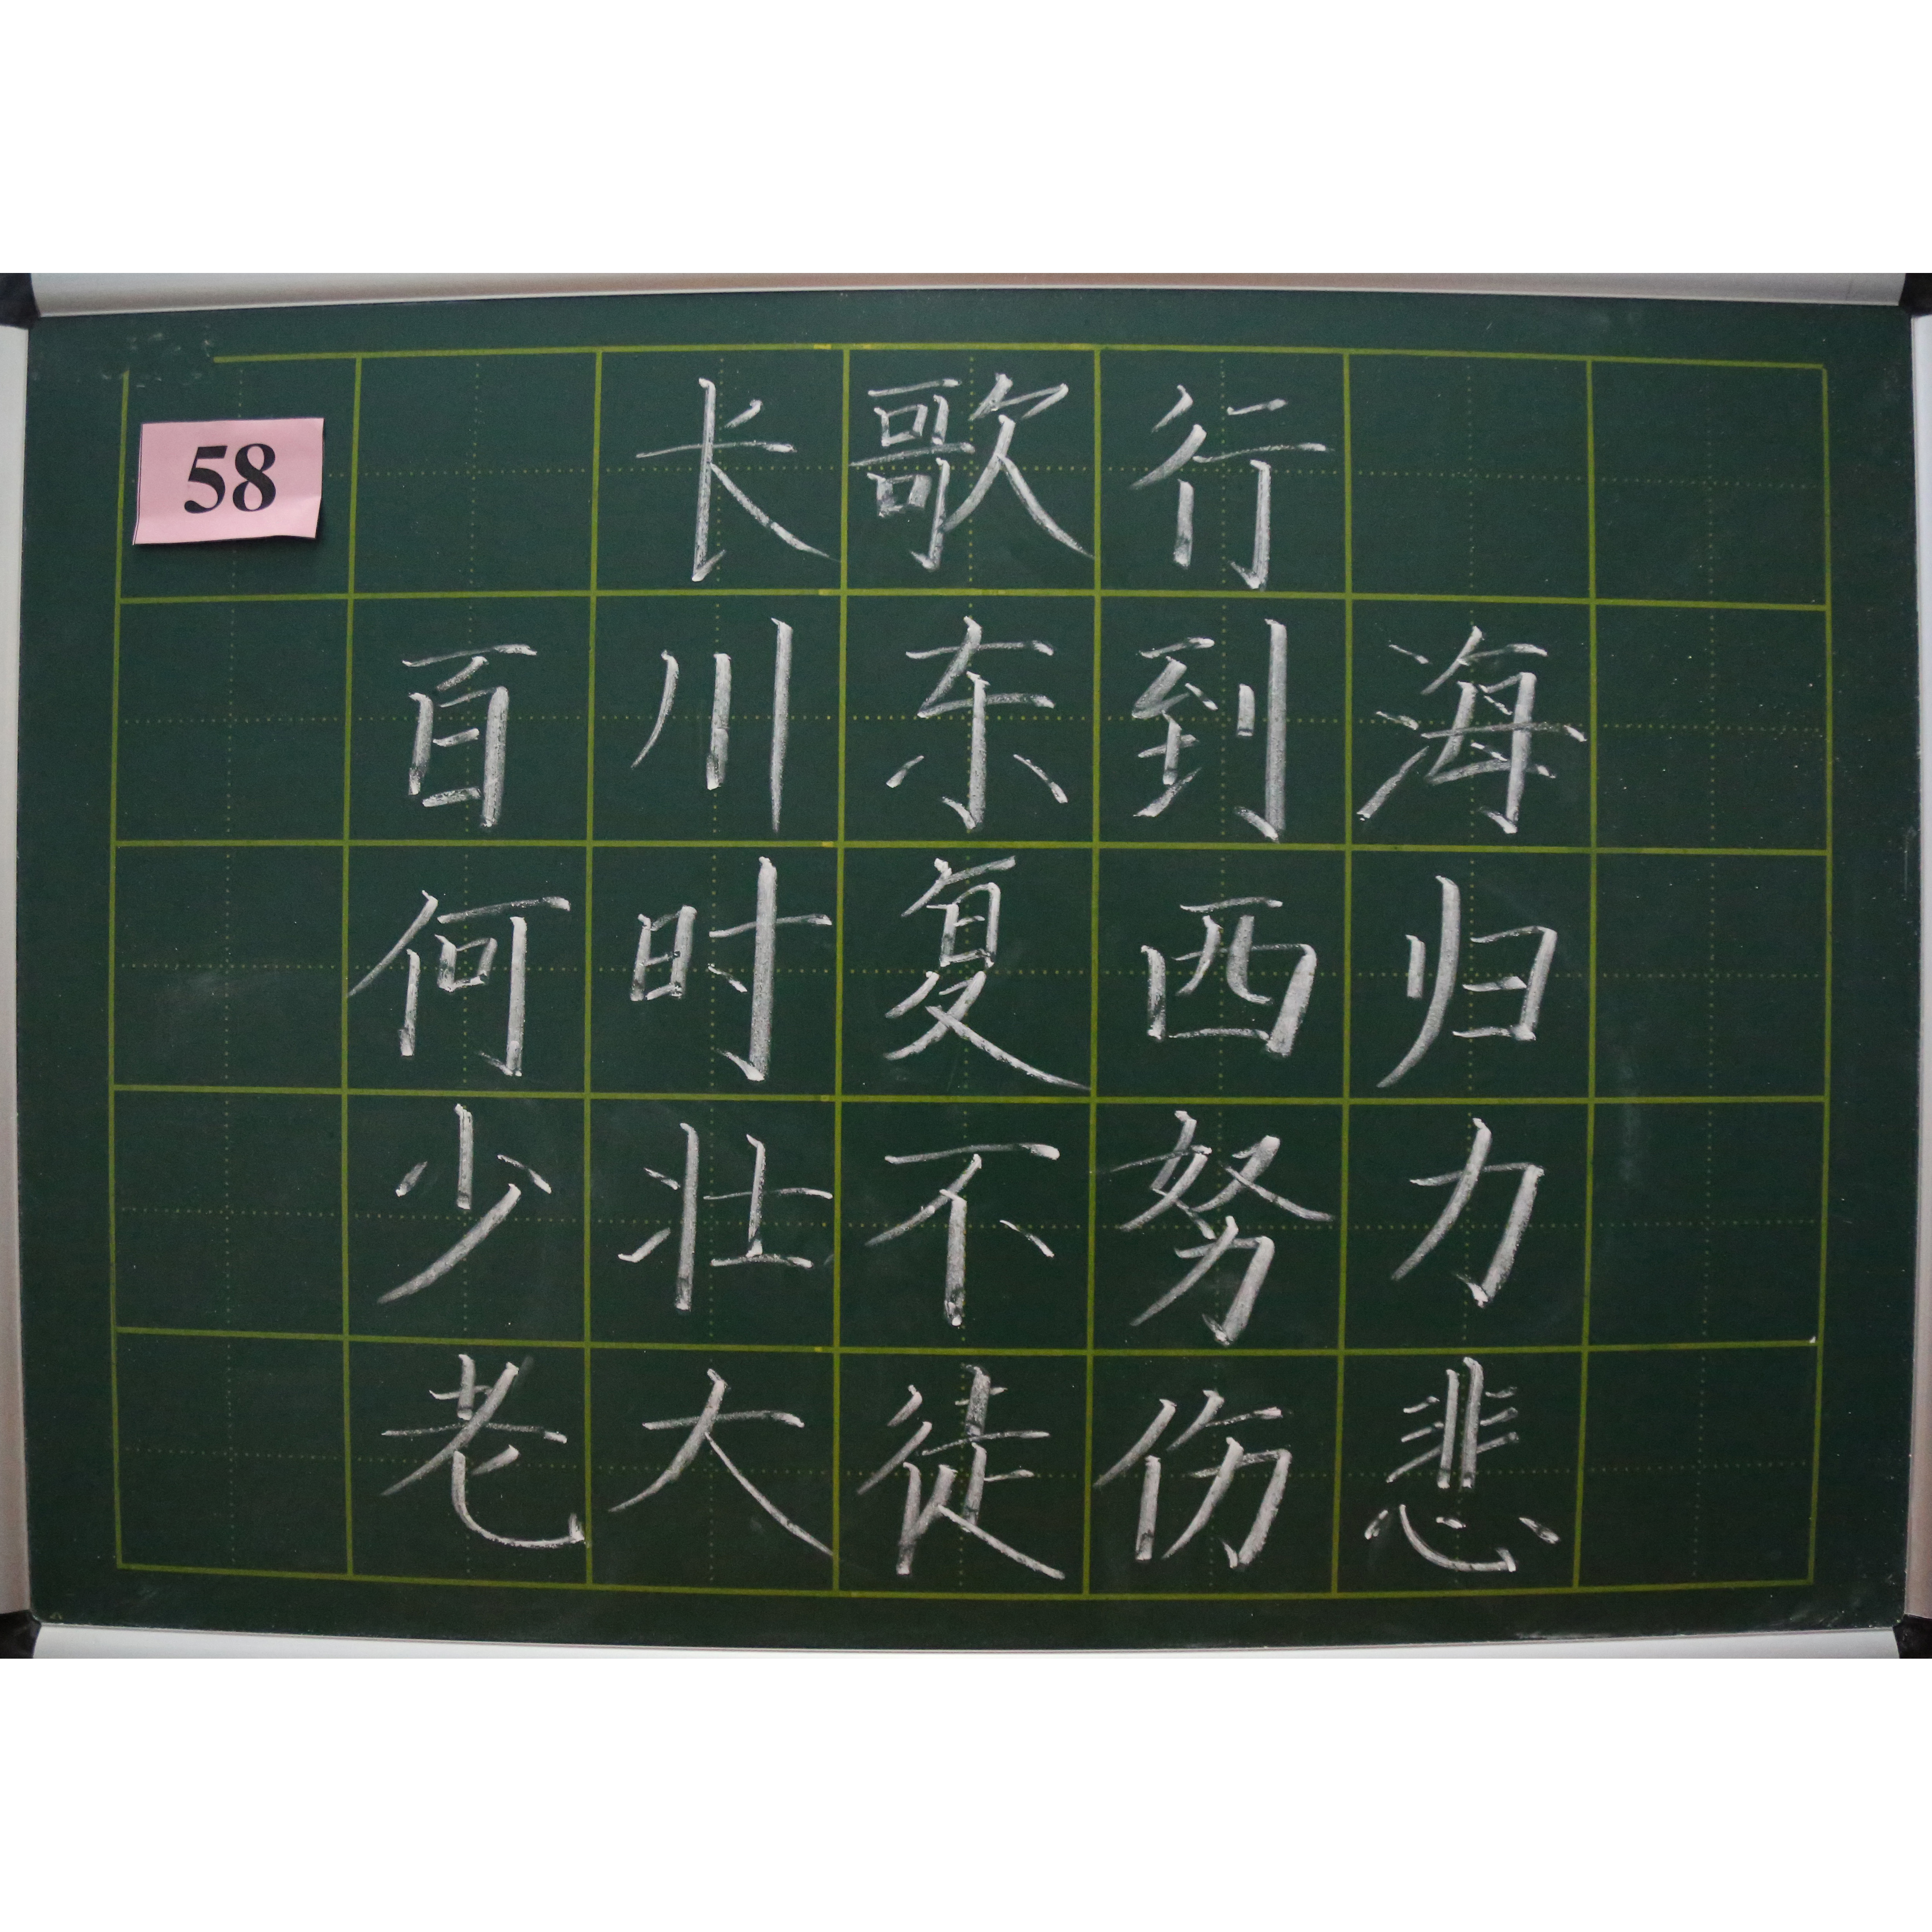 58
长歌行
百川东到海
何时复西归
少壮不努力
老大徒伤悲